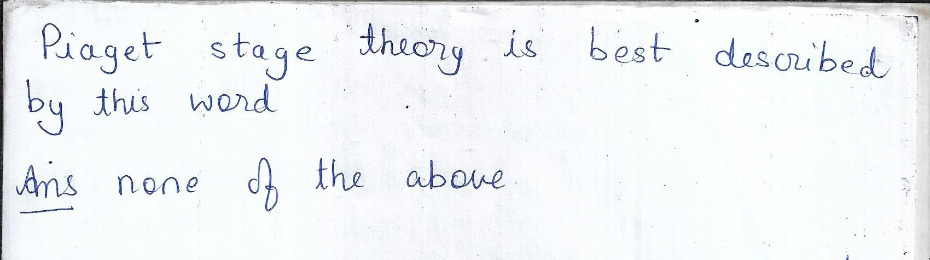 Piaget stage theory is best described
by this word
Ans none of the above